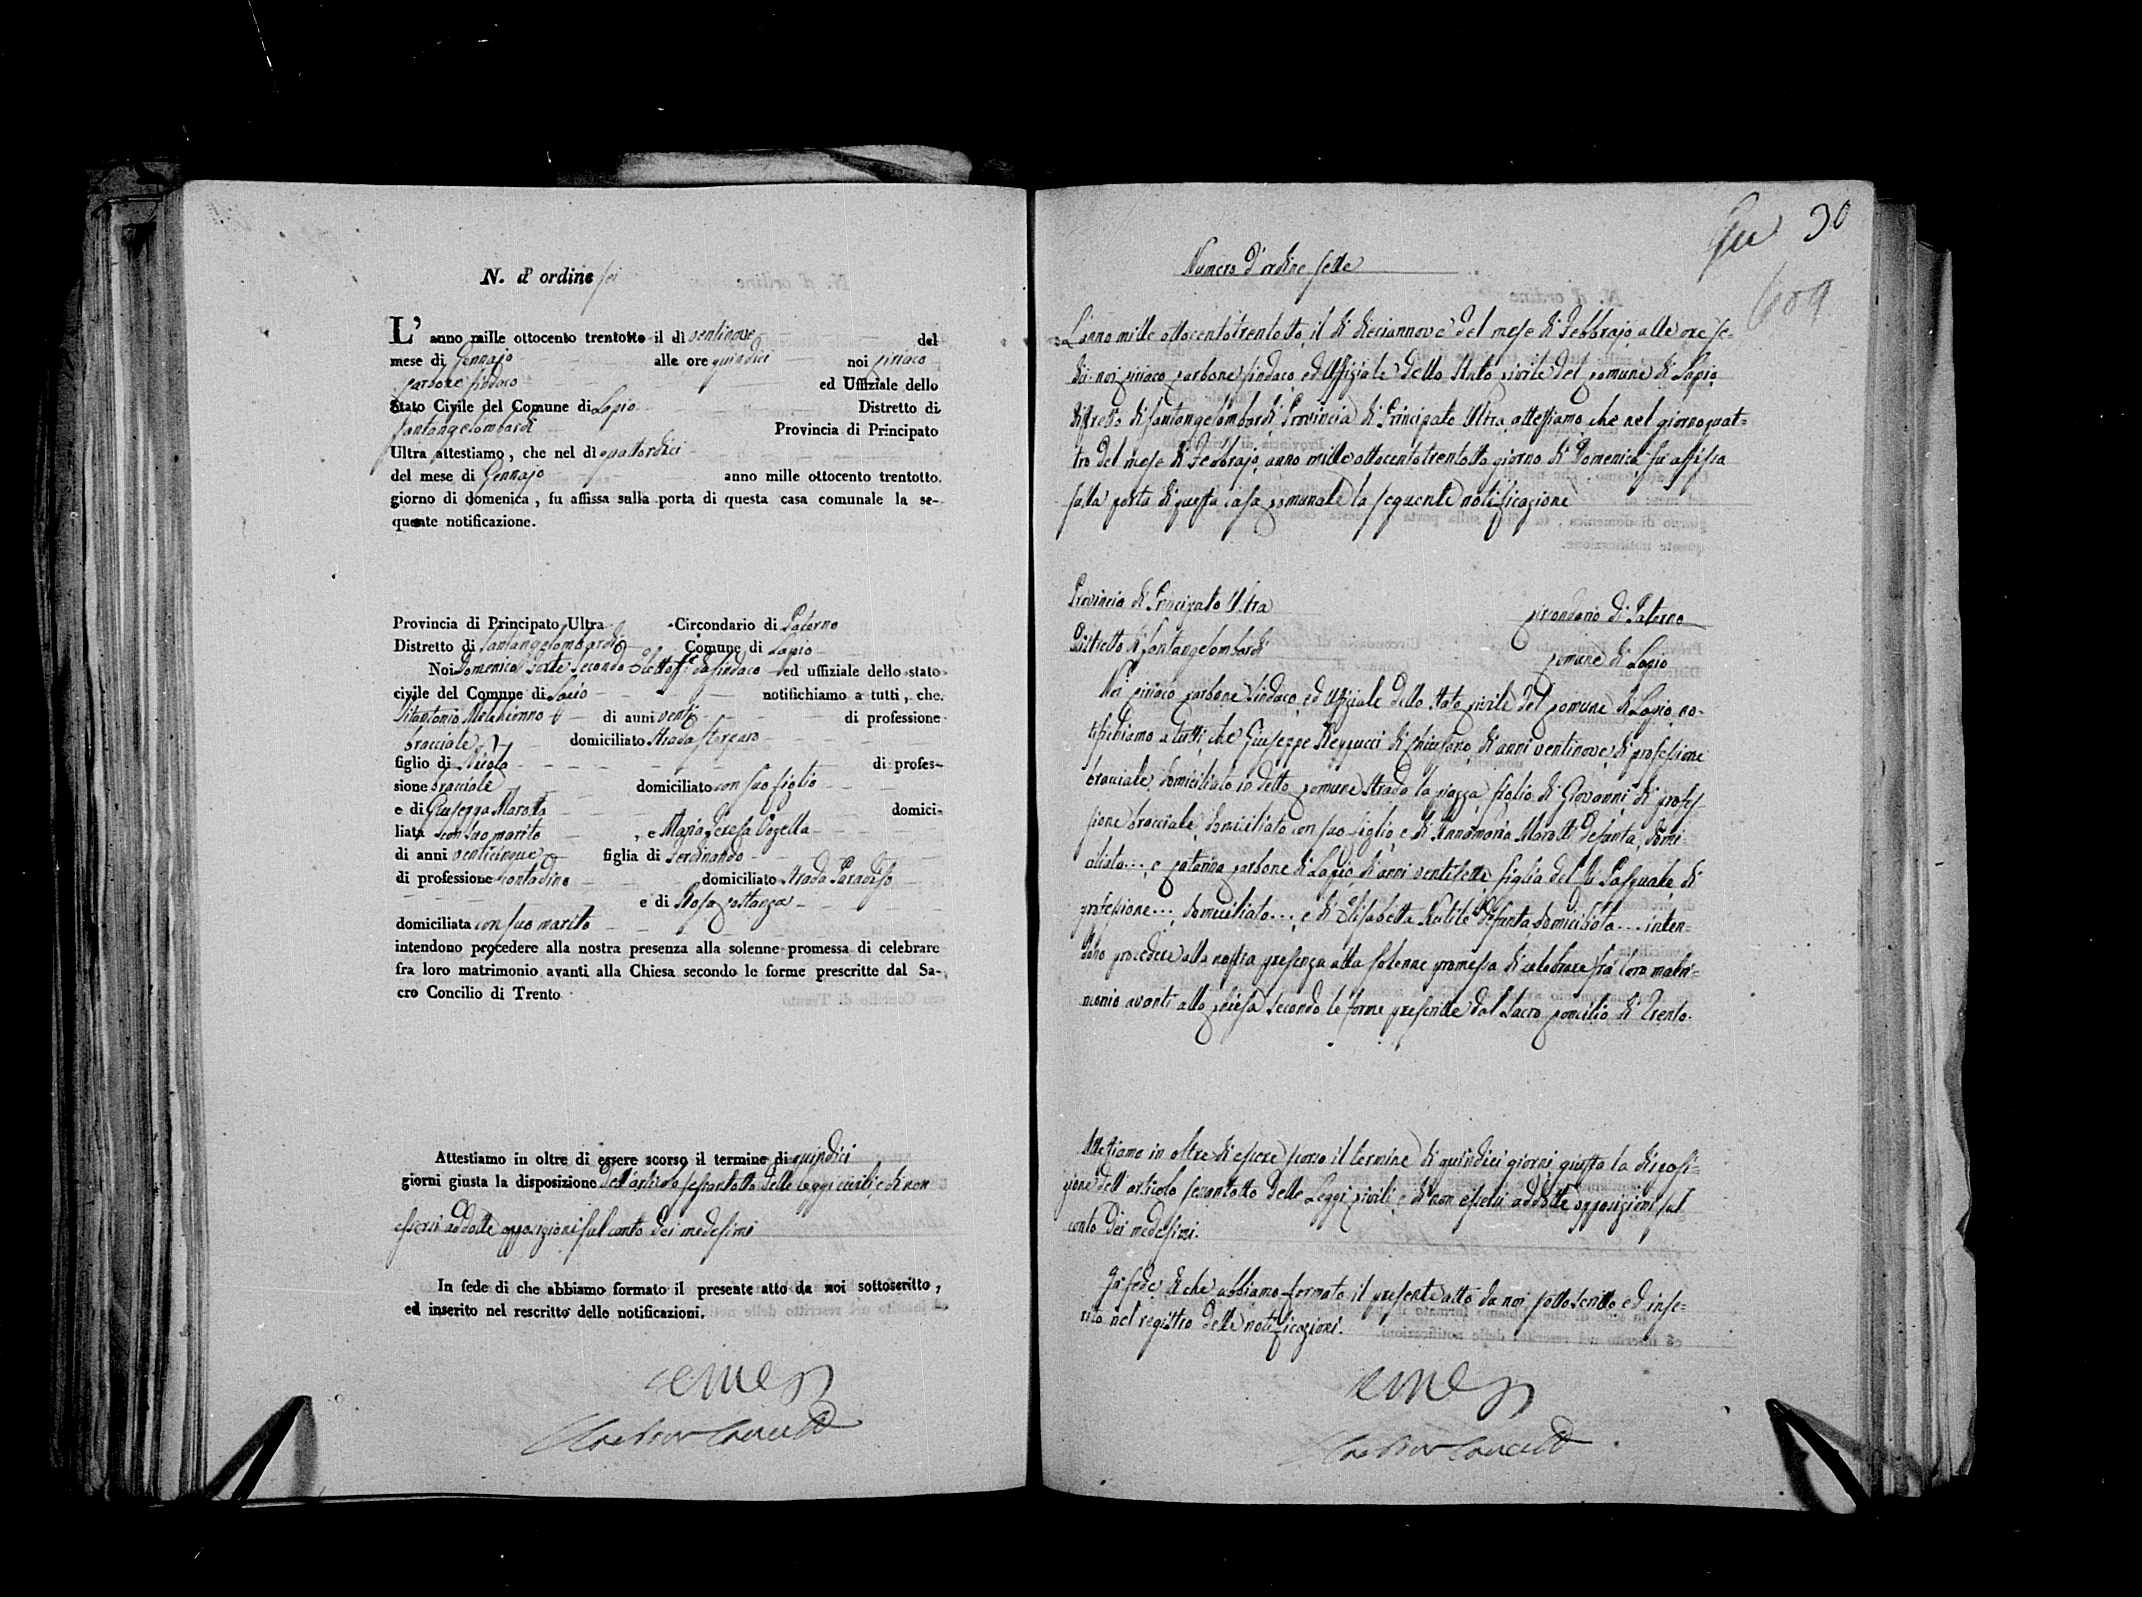 N. d' ordine sei
L' anno mille ottocento trentotto il dì ventinove del
mese di Gennajo alle ore quindici noi Ciriaco
Carbone Sindaco ed Uffiziale dello
Stato Civile del Comune di Lapio Distretto di
Santangelolombardi Provincia di Principato
Ultra attestiamo, che nel dì quattordici
del mese di Gennajo anno mille ottocento trentotto.
giorno di domenica, fu affissa sulla porta di questa casa comunale la se-
quente notificazione.
Provincia di Principato Ultra Circondario di Paterno
Distretto di Santangelolombardi Comune di Lapio
Noi Domenico Forte Secondo Eletto ff. da Sindaco ed uffiziale dello stato
civile del Comune di Lapio notifichiamo a tutti, che.
Vitantonio Melchionno di anni venti di professione
bracciale domiciliato Strada
figlio di Nicola di profes-
sione bracciale domiciliato con suo figlio
e di Giuseppa Marotta domici-
liata con suo marito, e Maria Teresa
di anni venticinque figlia di Ferdinando
di professione contadino domiciliato Strada Paradiso
e di Rosa Costanza
domiciliata con suo marito
intendono procedere alla nostra presenza alla solenne promessa di celebrare
fra loro matrimonio avanti alla Chiesa secondo le forme prescritte dal Sa-
cro Concilio di Trento
Attestiamo in oltre di essere scorso il termine di quindici
giorni giusta la disposizione dell'articolo sessantotto delle Leggi civili e di non
essersi addotte opposizioni sul conto dei medesimi
In fede di che abbiamo formato il presente atto da noi sottoscritto,
ed inserito nel rescritto delle notificazioni.
30
609
Numero d'ordine sette
L'anno mille ottocentotrentotto il dì diciannove del mese di Febbrajo alle ore se-
dici noi Ciriaco Carbone Sindaco ed Uffiziale dello Stato Civile del Comune di Lapio
distretto di Santangelolombardi Provincia di Principato Ultra attestiamo che nel giorno quat-
tro del mese di Febbrajo anno mille ottocentotrentotto giorno di Domenica fu affissa
sulla porta di questa casa comunale la seguente notificazione
Provincia di Principato Ultra Circondario di Paterno
Distretto di Santangelolombardi Comune di Lapio
Noi Ciriaco Carbone Sindaco ed Uffiziale dello Stato Civile del Comune di Lapio no-
tifichiamo a tutti che Giuseppe di Chiusano di anni ventinove di professione
bracciale domiciliato in detto Comune Strada la piazza figlio di Giovanni di profes-
sione bracciale domiciliato con suo figlio e di Annamaria Marotti defunta, domi-
ciliata... e Catarina Carbone di Lapio di anni ventisette figlia del fu Pasquale di
professione... domiciliato... e di Elisabetta Rutile defunta domiciliata... inten-
dono procedere alla nostra presenza alla solenne promessa di celebrare fra loro matri-
monio avanti alla Chiesa secondo le forme prescritte dal Sacro Concilio di Trento.
Attestiamo in oltre di essere scorso il termine di quindici giorni giusta la disposi-
zione dell'articolo sessantotto delle Leggi Civili e di non essersi addotte opposizioni sul
conto dei medesimi.
In fede di che abbiamo formato il presente atto da noi sottoscritto ed inse-
rito nel registro delle notificazioni.